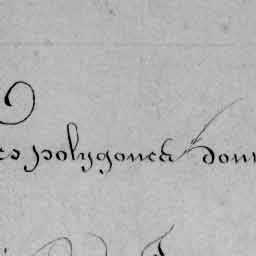 es polygones don